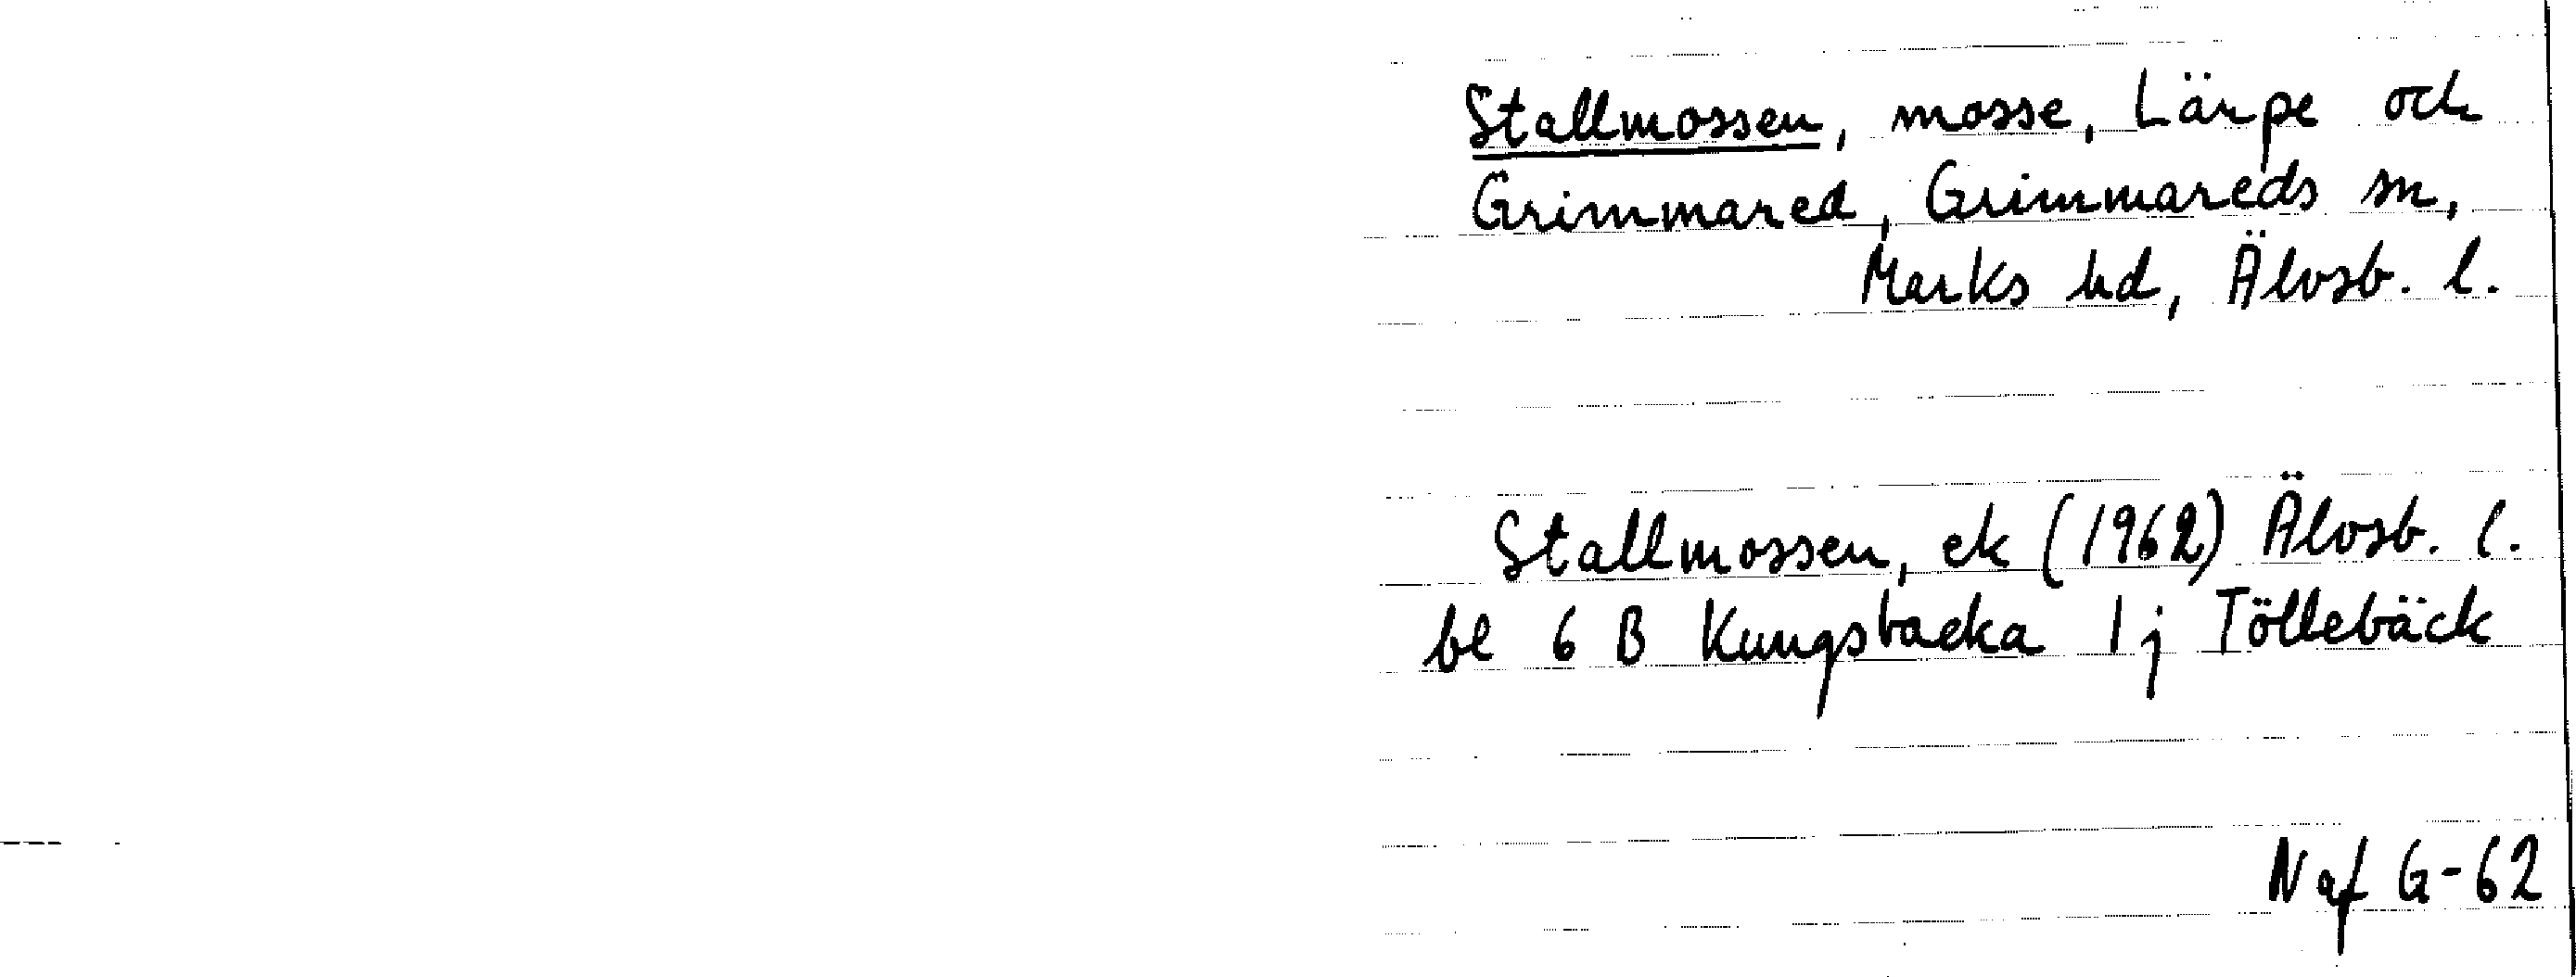 Stallmossen, mosse, Lärpe och
Grimmared, Grimmareds sn,
Marks hd, Älvsb. l.
Stallmossen, ek (1962) Älvsb. l.
bl 6 B Kungsbacka 1j Töllebäck
N af G-62